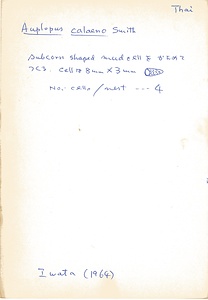 Thai
Auplopus calaeno Smith
subcorn shaped mud cell を かためて
つくる. cell は 8mm × 3mm
No. cells / nest --- 4
Iwata (1964)